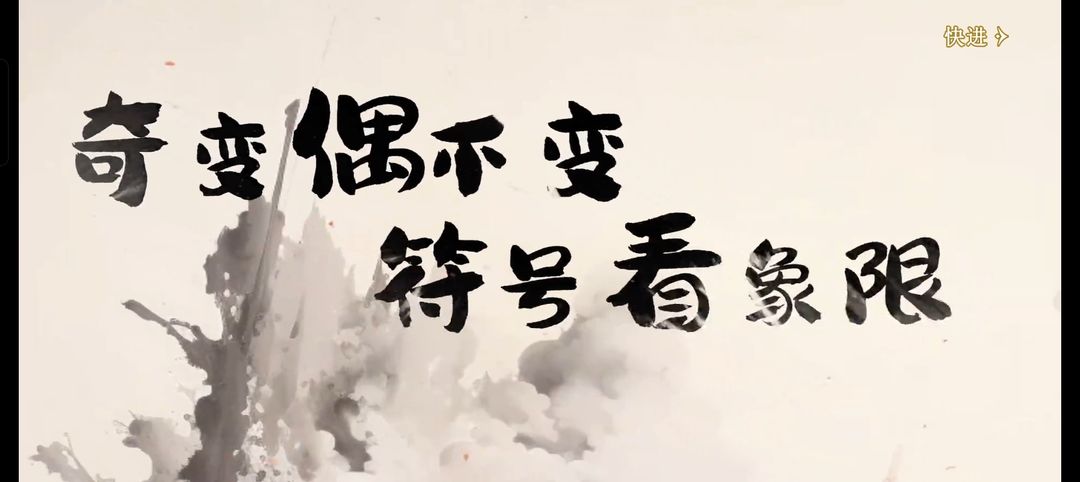 快进
奇变偶不变
符号看象限